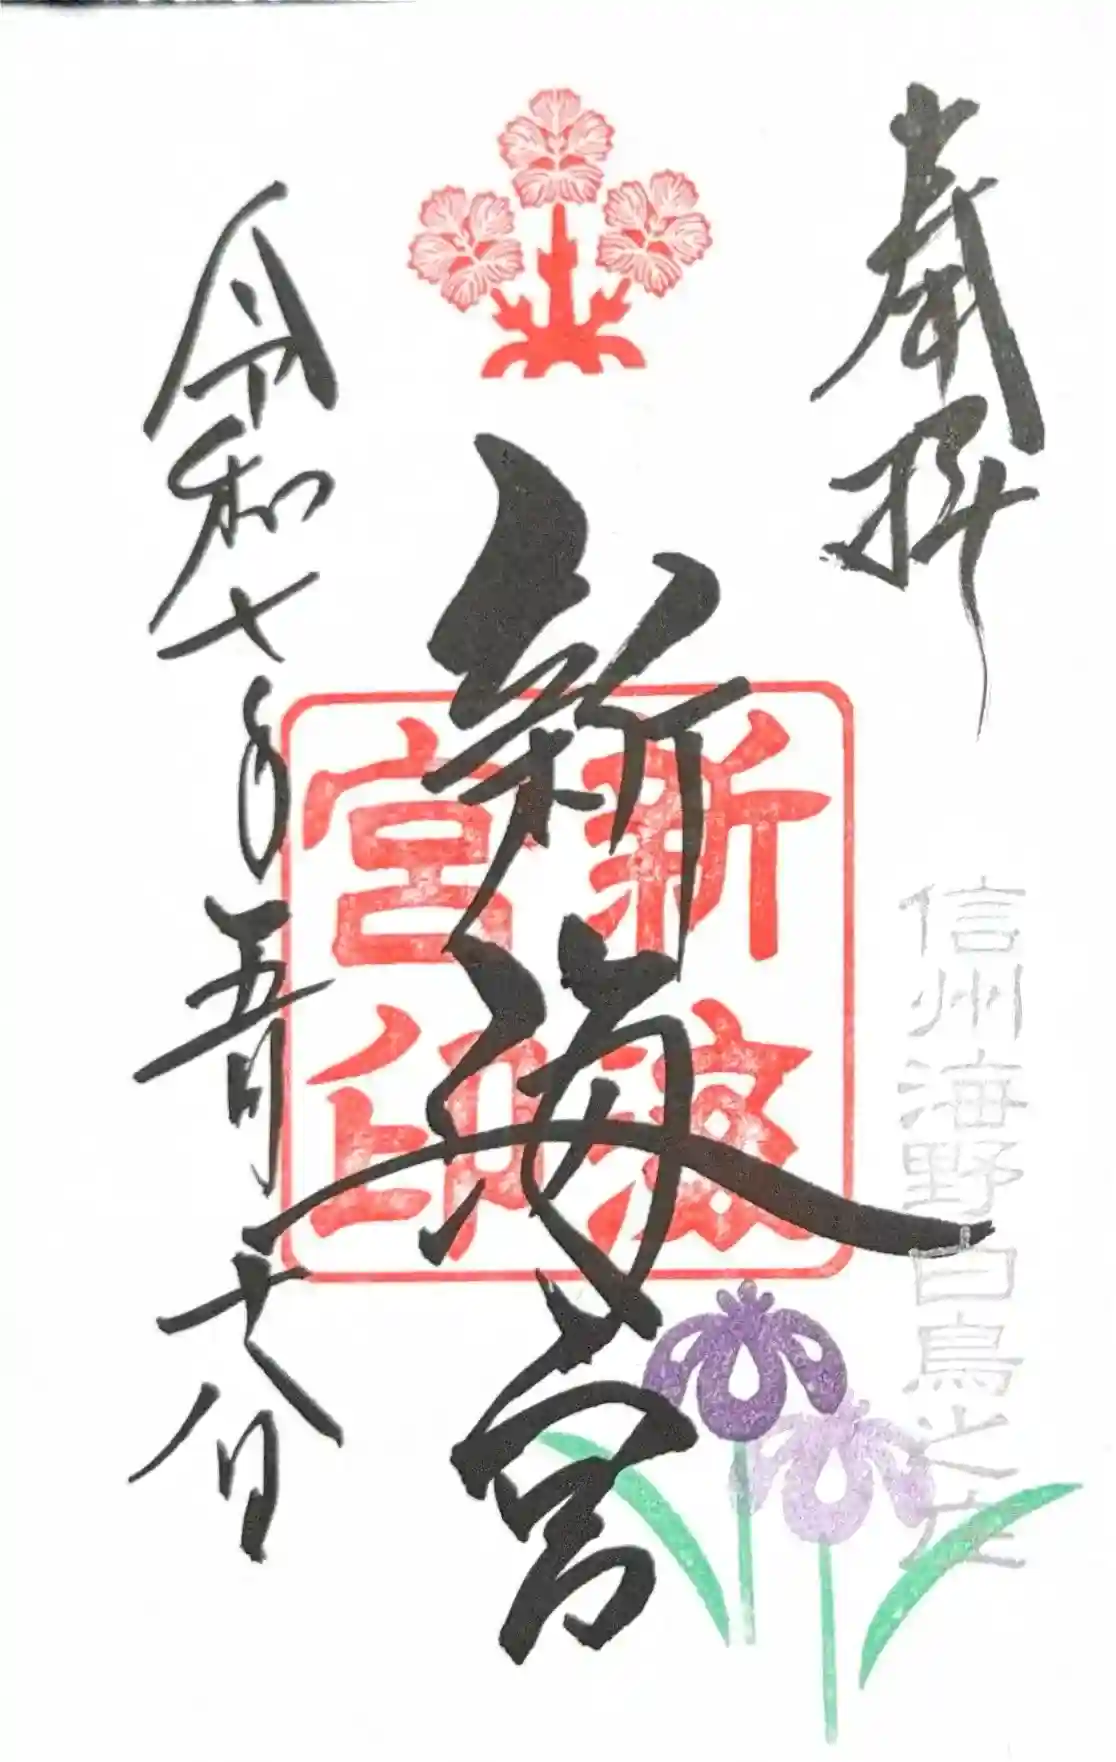 奉拝
信州海野白鳥之庄
新海宮
新海
宮印
令和七年五月十八日